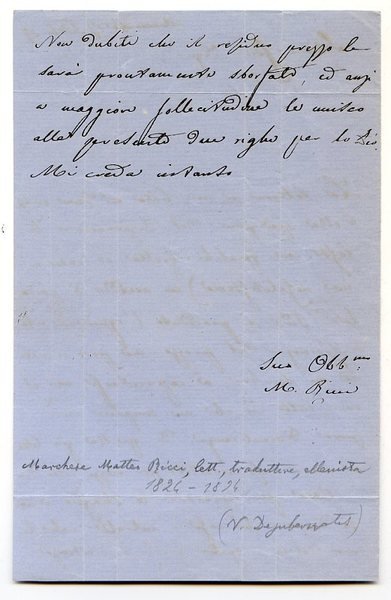 Non dubiti che il residuo prezzo le
sarà prontamente sborsato, ed anzi
a maggior sollecitudine le unisco
alla presente due righe per lo
Mi creda intanto
Suo Obbmo
M. Ricci
Marchese Matteo Ricci, lett., traduttore, ellenista
1826 - 1896
(V. Degubernatis)